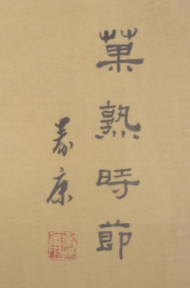 菓熟時節
春康